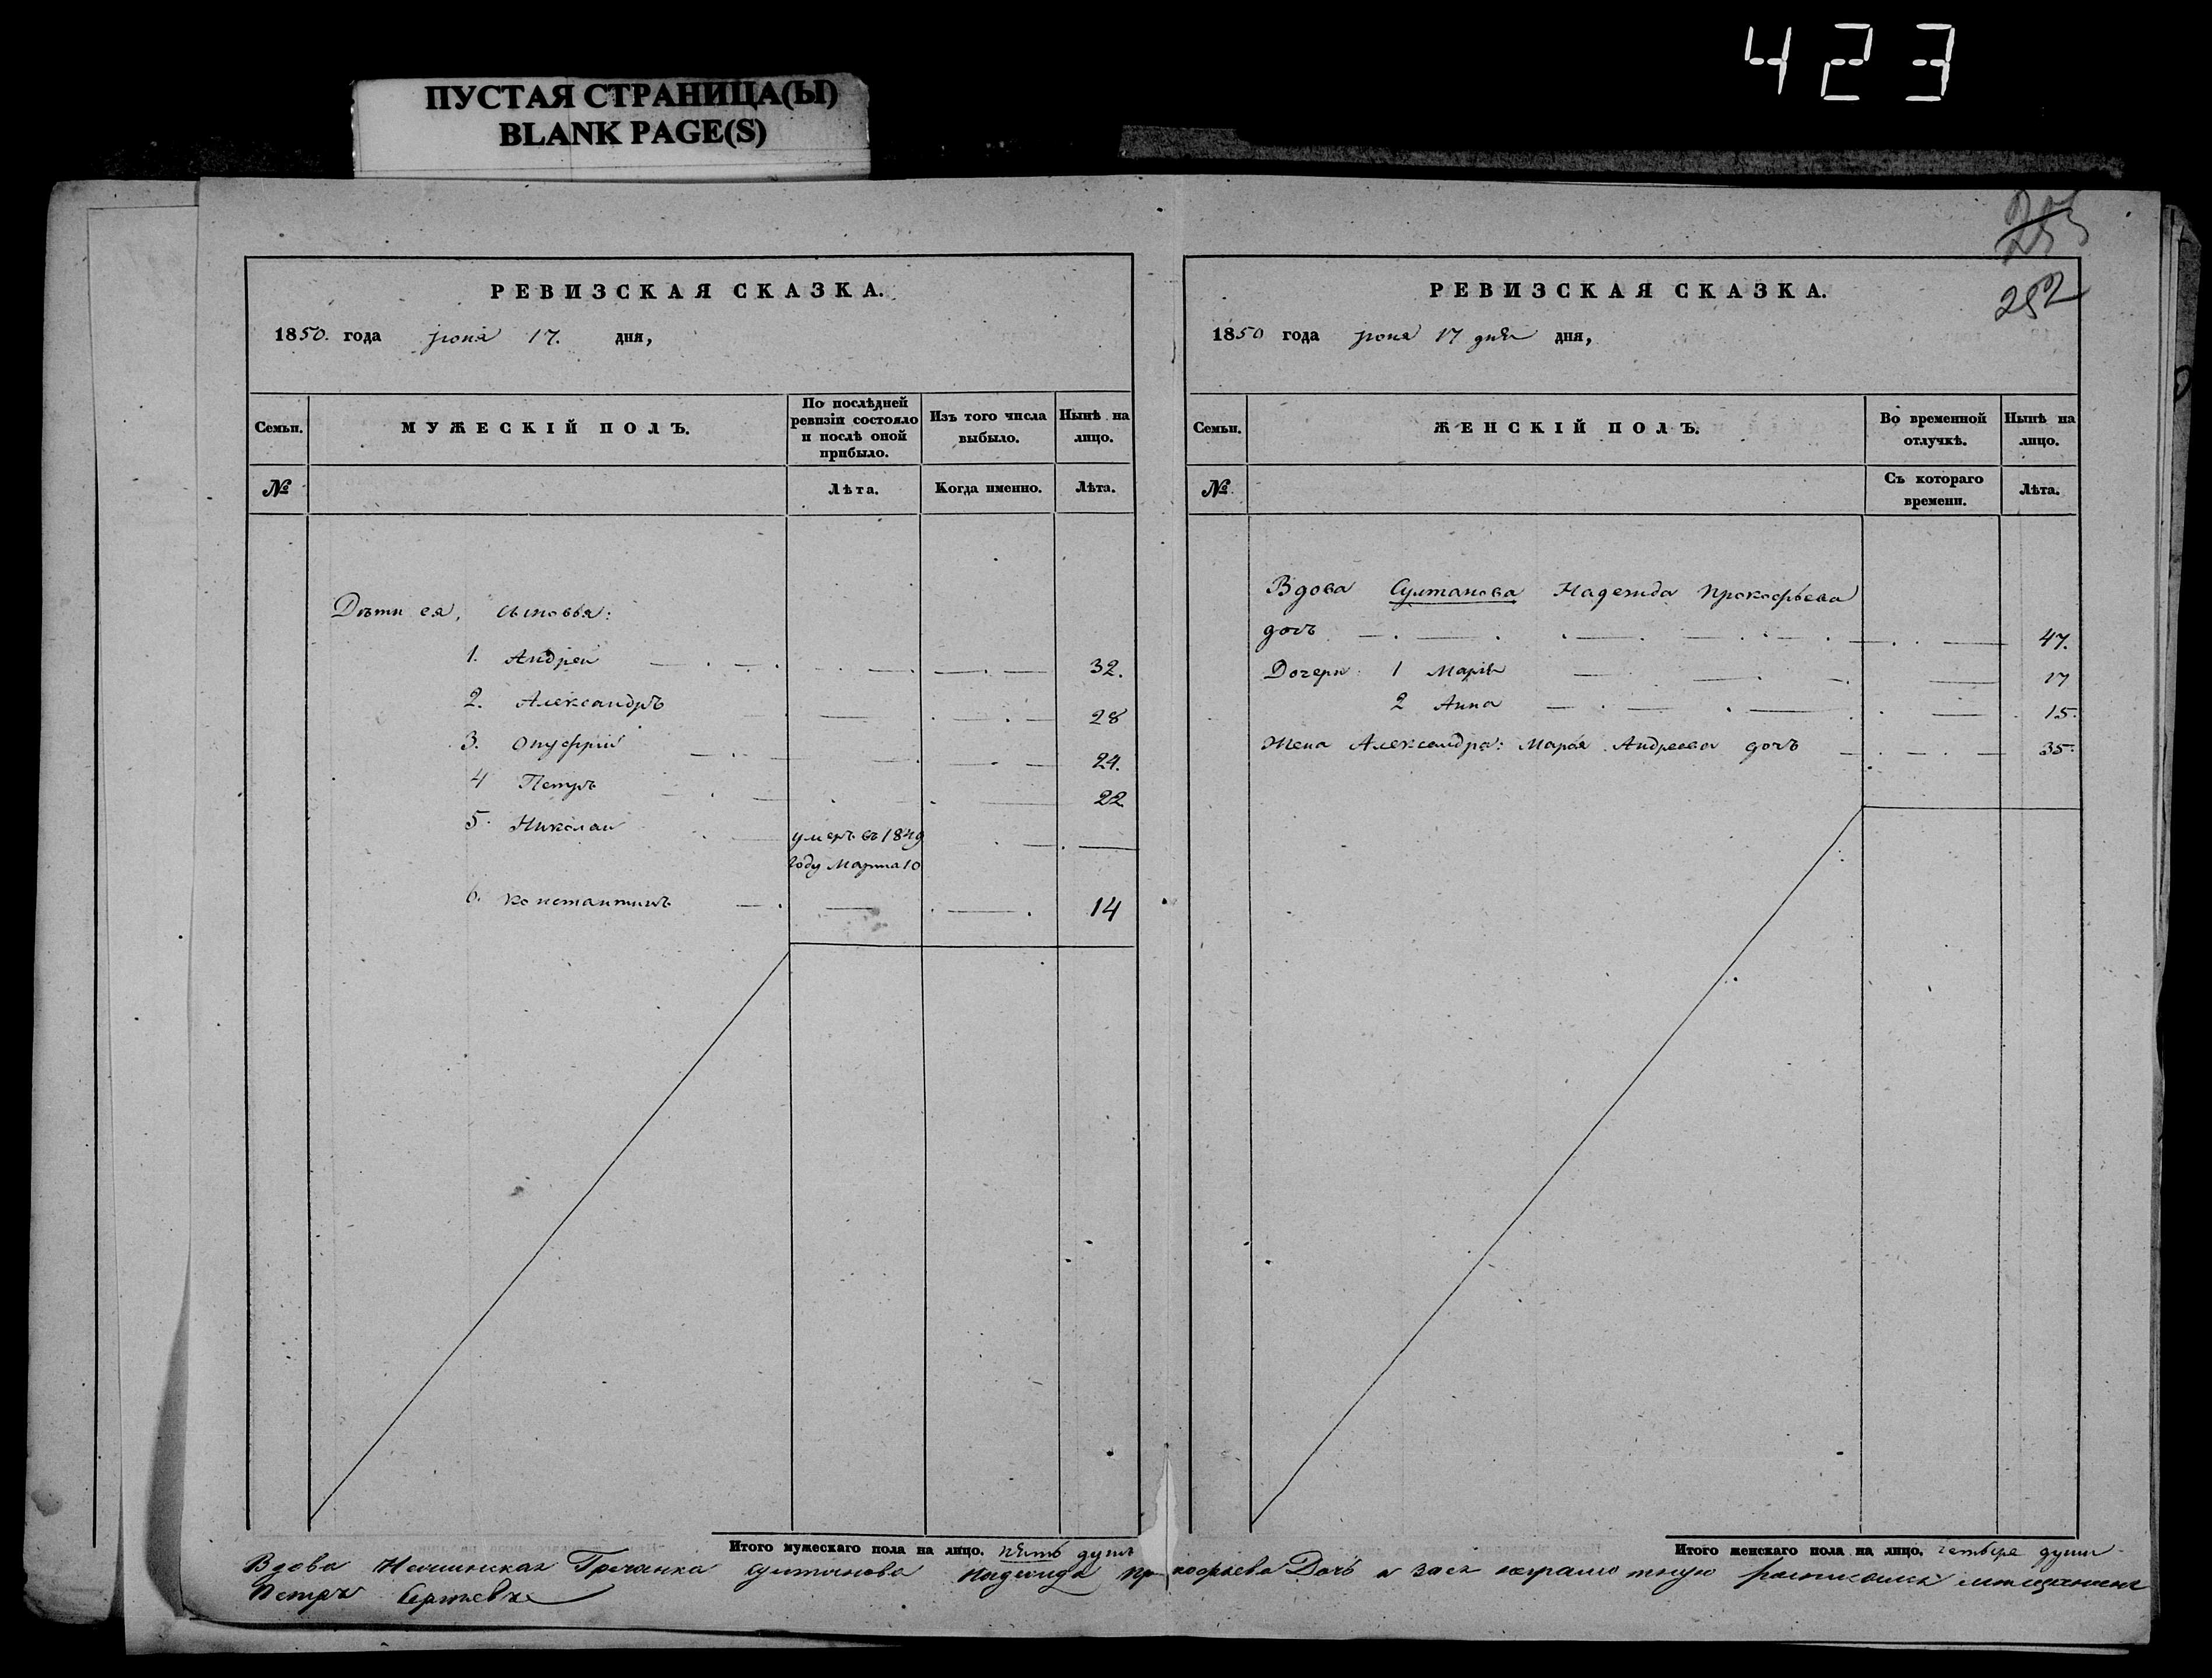 423
ПУСТАЯ СТРАНИЦА(Ы)
BLANK PAGE(S)
252
РЕВИЗСКАЯ СКАЗКА.
1850. года іюня 17. дня,
Семьи.
МУЖЕСКІЙ ПОЛЪ.
По послѣдней ревизіи состояло и послѣ оной прибыло.
Изъ того числа выбыло.
Нынѣ на лицо.
№
Лѣта.
Когда именно.
Лѣта.
Дѣти ея, сыновья:
1. Андрей 32.
2. Александръ 28
3. Онуфрій 24.
4 Петръ 22
5. Николай умеръ въ 1849
году Марта 10
6. Константинъ 14
Итого мужескаго пола на лицо. пять душъ
РЕВИЗСКАЯ СКАЗКА.
1850 года іюня 17 дня дня,
Семьи.
ЖЕНСКІЙ ПОЛЪ.
Во временной отлучкѣ.
Нынѣ на лицо.
№
Съ котораго времени.
Лѣта.
Вдова Султанова Надежда Прокофьева
дочь 47.
Дочери 1 Марія 17
2 Анна 15.
Жена Александра: Марья Андреева дочь 35.
Итого женскаго пола на лицо, четыре души
Вдова Нежинская Гречанка Султанова Надежда Прокофьева Дочь а за ея неграмотную росписался мещанинъ
Петръ